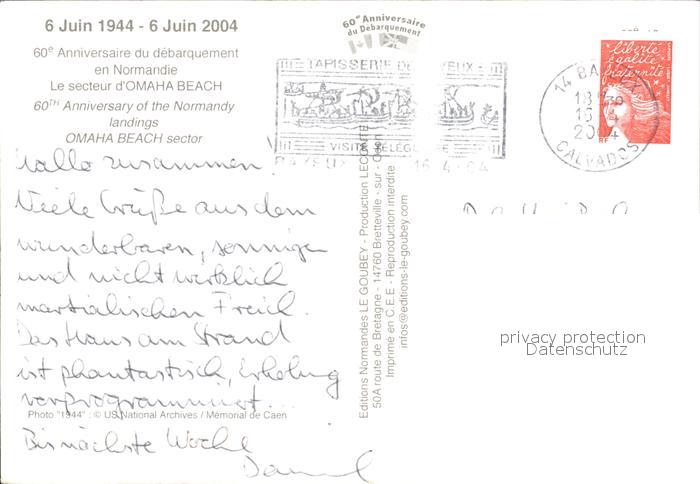 6 Juin 1944 - 6 Juin 2004
60e Anniversaire du débarquement
en Normandie
Le secteur d'OMAHA BEACH
60TH Anniversary of the Normandy
landings
OMAHA BEACH sector
Hallo zusammen!
Viele Grüße aus dem
wunderbaren, sonnigen
und nicht wirklich
martialischen Freich.
Das Haus am Strand
ist phantastisch, Erholung
vorprogrammiert...
Photo "1944" : © US National Archives / Mémorial de Caen
Bis nächste Woche
60e Anniversaire
du Débarquement
TAPISSERIE DE BAYEUX
VISITE
BAYEUX 16-4-04
Editions Normandes LE GOUBEY - Production LECONTE
50A route de Bretagne - 14760 Bretteville - sur - Odon
Imprimé en C.E.E - Reproduction interdite
infos@editions-le-goubey.com
liberté
égalité
fraternité
RF
14 BAYEUX
18H30
16 -4
2004
CALVADOS
privacy protection
Datenschutz